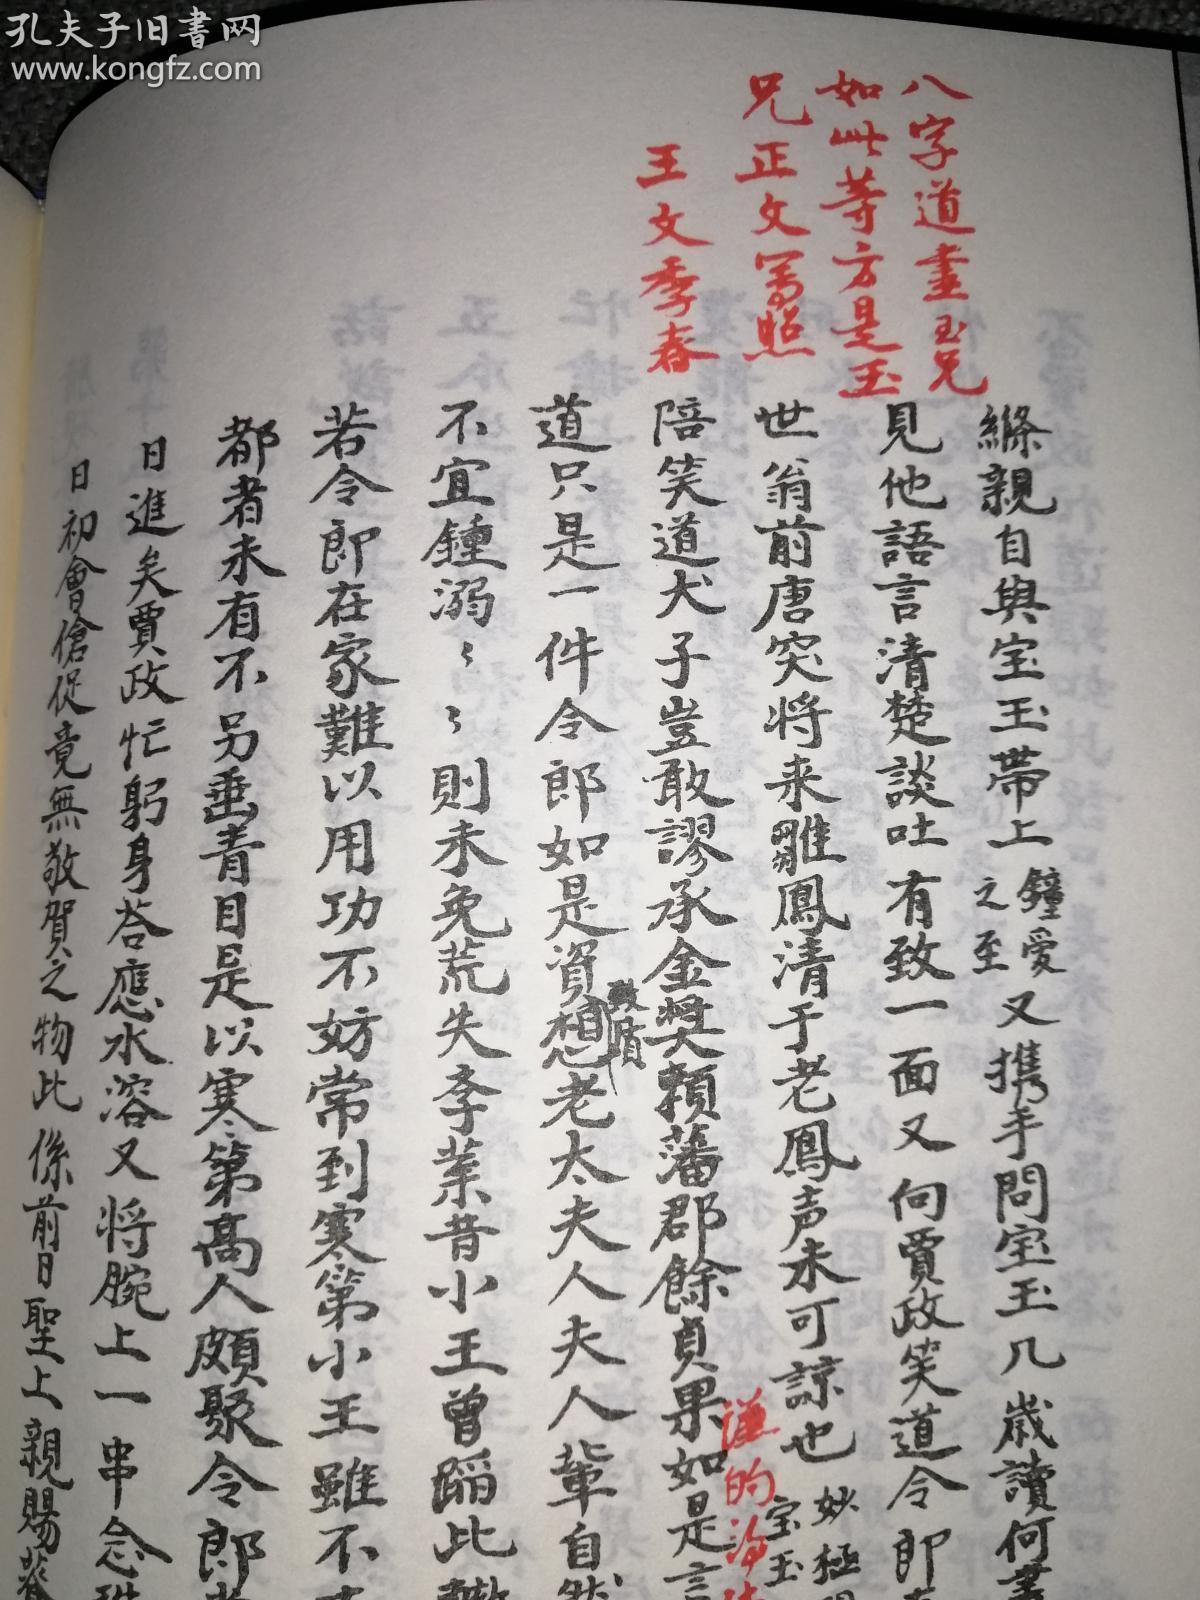 孔夫子旧書网
www.kongfz.com
八字道盡玉兄
如此等方是玉
兄正文写照
王文季春
縧親自與宝玉帯上
鐘愛
之至
又携手問宝玉几歳讀何書
見他語言清楚談吐有致一面又向賈政笑道令郎
世翁前唐突将来雛鳳清于老鳳声未可諒也
妙極
宝玉
陪笑道犬子豈敢謬承金奬頼藩郡餘貞果如是言
謹的
道只是一件令郎如是資想老太夫人夫人輩自然
質
不宜鍾溺〻〻則未免荒失李業昔小王曾蹈此轍
若令郎在家難以用功不妨常到寒第小王雖不
都者未有不另垂青目是以寒第高人頗聚令郎
日進矣賈政忙躬身荅應水溶又将腕上一串念珠
日初會傖促竟無敬賀之物此係前日聖上親賜